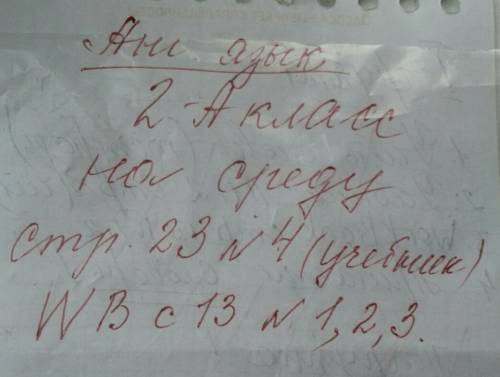 Анг язык
2-А класс
на среду
стр. 23 N 4 (учебник)
WB с 13 N 1, 2, 3.